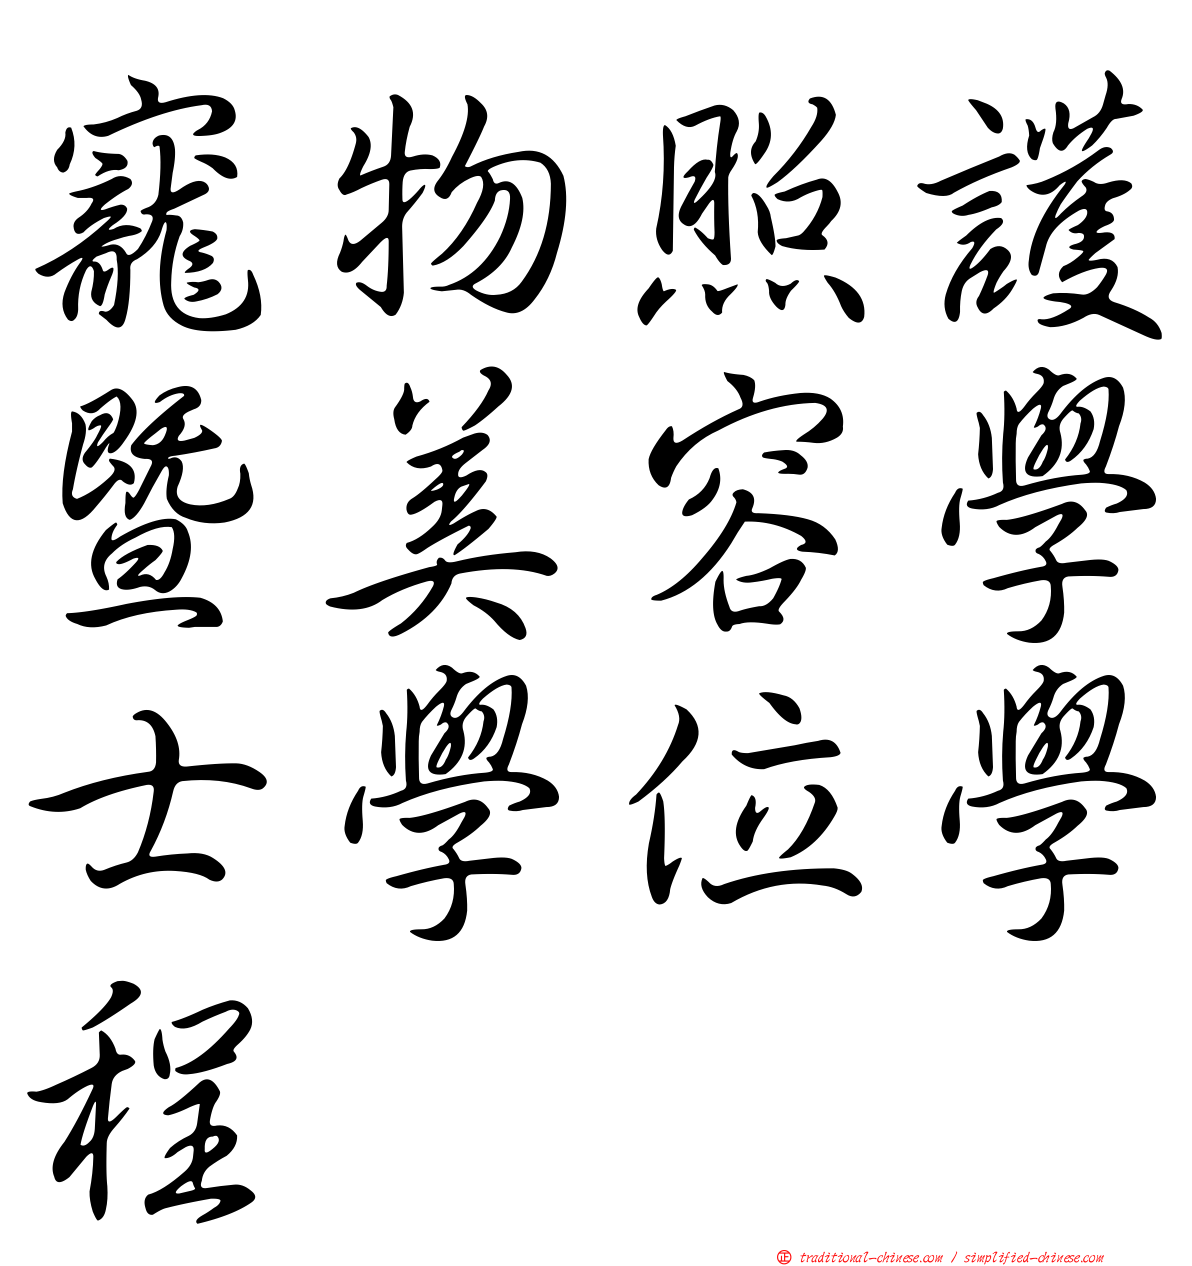 寵物照護
暨美容學
士學位學
程
㊣ traditional-chinese.com / simplified-chinese.com